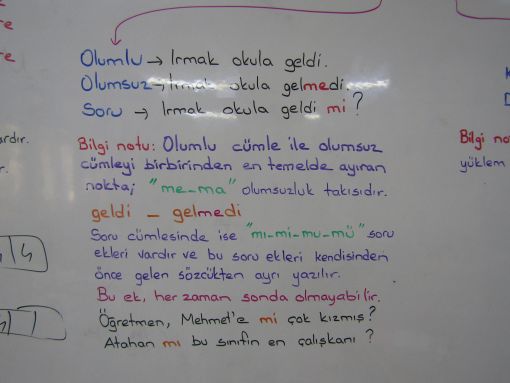 Olumlu → Irmak okula geldi.
Olumsuz → Irmak okula gelmedi.
Soru → Irmak okula geldi mi?
Bilgi notu: Olumlu cümle ile olumsuz
cümleyi birbirinden en temelde ayıran
nokta; "me-ma" olumsuzluk takısıdır.
geldi - gelmedi
Soru cümlesinde ise "mı-mi-mu-mü" soru
ekleri vardır ve bu soru ekleri kendisinden
önce gelen sözcükten ayrı yazılır.
Bu ek, her zaman sonda olmayabilir.
Öğretmen, Mehmet'e mi çok kızmış?
Atahan mı bu sınıfın en çalışkanı?
Bilgi no
yüklem